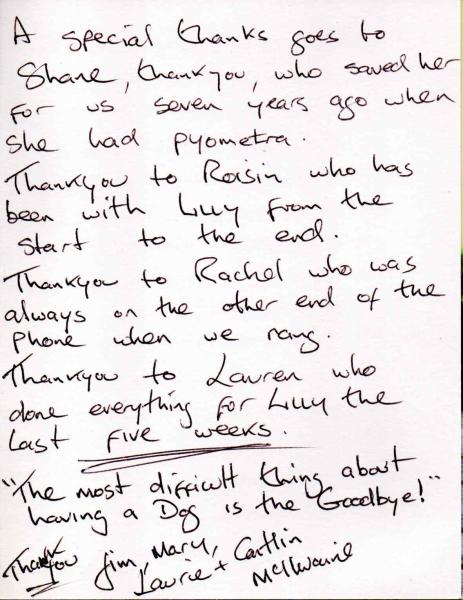 A special thanks goes to
Shane, thankyou, who saved her
for us seven years ago when
she had pyometra.
Thankyou to Roisin who has
been with Lilly from the
start to the end.
Thankyou to Rachel who was
always on the other end of the
phone when we rang.
Thankyou to Lauren who
done everything for Lilly the
last five weeks.
"The most difficult thing about
having a Dog is the Goodbye!"
Thankyou Jim, Mary,
Laurie + Caitlin
McIlwaine